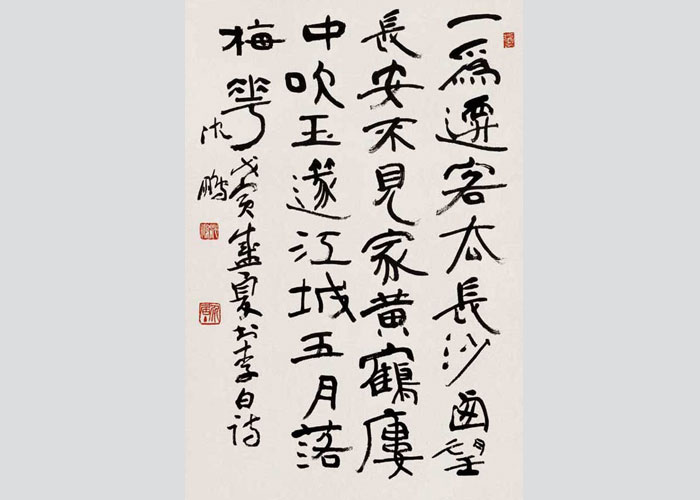 一為遷客去長沙西望
長安不見家黃鶴廔
中吹玉篴江城五月落
梅華戊寅盛夏书李白詩
沈鵬